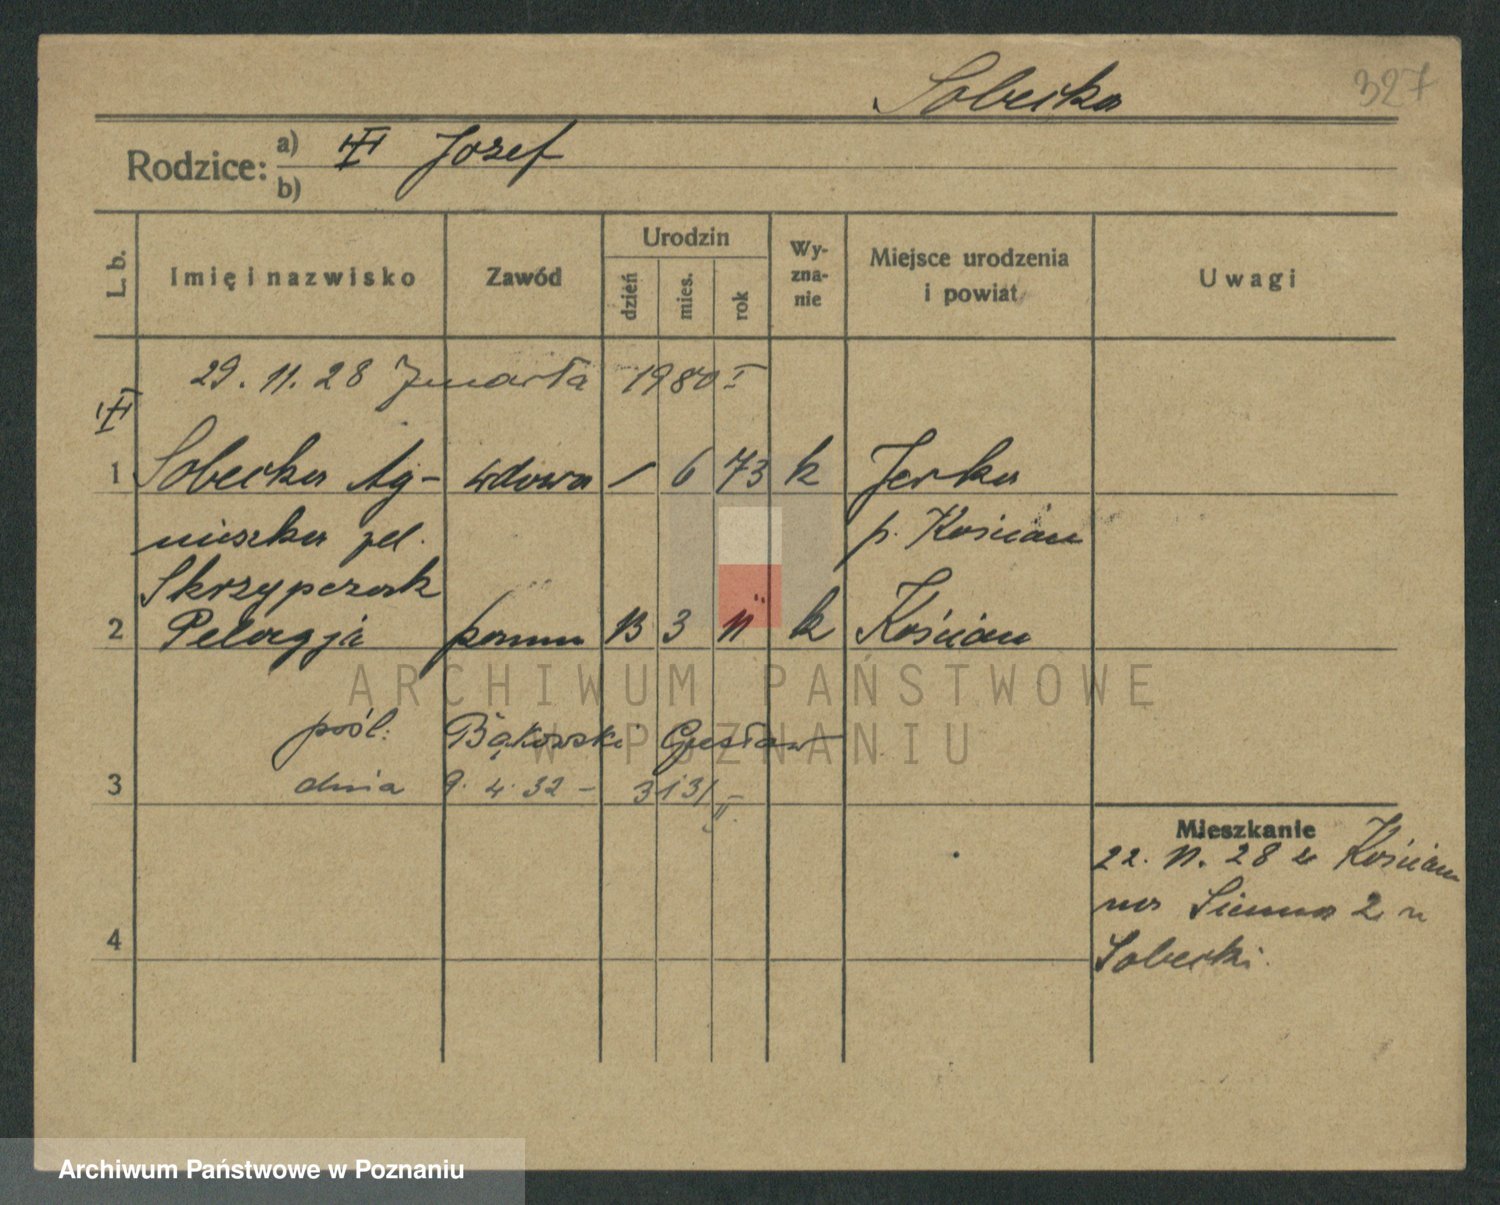 Sobecka 327
Rodzice: a) Józef
b)
L. b. Imię i nazwisko Zawód Urodzin dzień mies. rok Wyznanie Miejsce urodzenia i powiat Uwagi
29. 11. 28 Zmarła 1980 I
1 Sobecka Ag- wdowa 1 6 73 k Jerka
nieszka zd. p. Kościan
Skrzypczak
2 Pelagja 13 3 11 k Kościan
pośl. Bąkowski Czesław
dnia 9. 4. 32 -
3
Mieszkanie
22. 11. 28 w Kościan
na 2 u
4 Sobecki.
ARCHIWUM PAŃSTWOWE
W POZNANIU
Archiwum Państwowe w Poznaniu